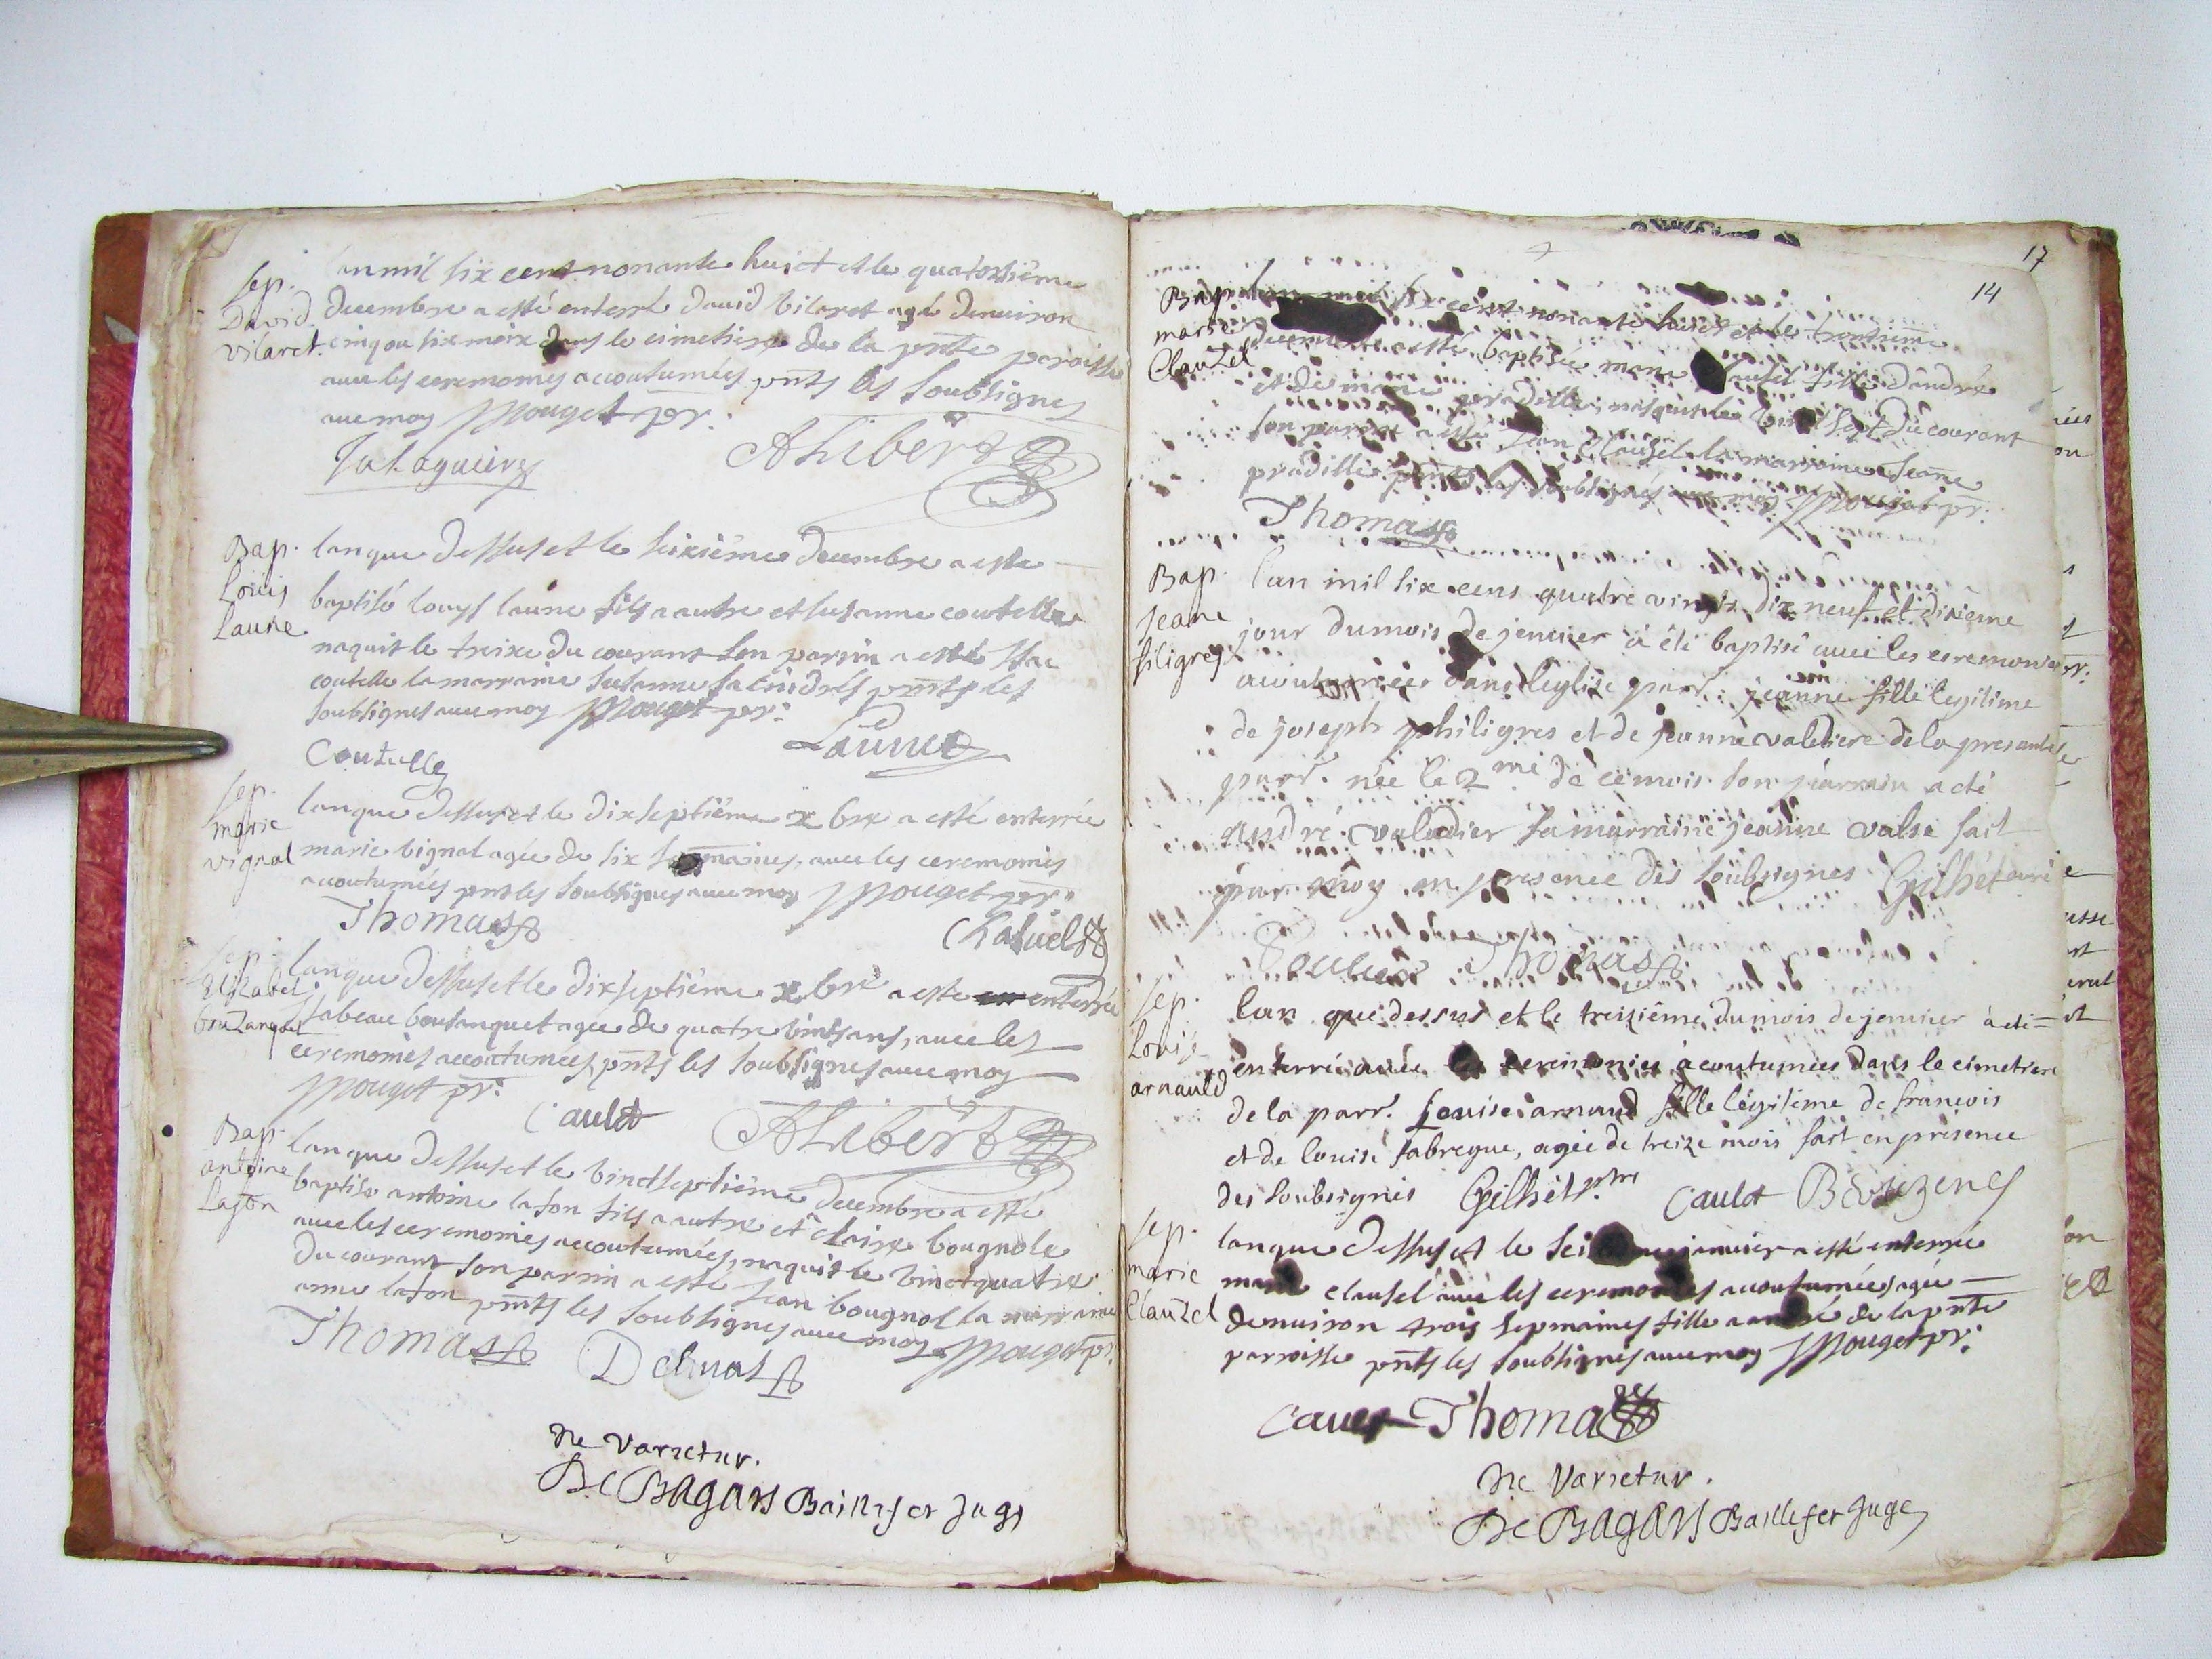 Sep. David Vilaret.
lan mil six cent nonante huict et le quatorsiéme
decembre a esté enterré david vilaret agé denviron
cinq ou six moix dans le cimetiere de la pnte paroisse
avec les ceremonies accoutumées pnts les soubsignes
avec moy Mouget pr:
AHibert
Bap. Louis Laune
lan que dessus et le seiziéme decembre a este
baptisé louys laune fils a autre et susanne coutelle
naquit le treize du courant son parrin a esté Isac
coutelle la marraine susanne pnts les
soubsignes avec moy Mouget pr:
Laune
Coutelle
Sep. marie vignal
lan que dessus et le dixseptiéme xbre a esté enterrée
marie vignal agée de six semaines, avec les ceremonies
accoutumées pnts les soubsignes avec moy Mouget pr.
Thomas
Sep. Elizabet
lan que dessus et le dixseptiéme xbre a este enterrée
Isabeau bousanquet agée de quatre vints ans, avec les
ceremonies accoutumées, pnts les soubsignes avec moy
Mouget pr:
Caulet AHibert
Bap. antoine Lafon
lan que dessus et le vinctseptiéme decembre a esté
baptise antoine lafon fils a autre et claire bougnole
avec les ceremonies accoutumées, naquit le vinctquatre
du courant son parrin a esté Jean bougnol la marraine
anne lafon pnts les soubsignes avec moy Mouget pr.
Thomas Delmas
Ne Varietur.
De Bagars Baillif et Juge
17
14
Bap. marie Clauzel
lan mil six cent nonante huict et le trentiéme
decembre a esté baptisée marie clausel fille dandré
et de marie pradelle, nasquit le vint sept du courant
son parrin a esté Jean Clausel la marraine Jeane
pradille pnts les soubsignés avec moy Mouget pr.
Thomas
Bap. Jeane filigres
l'an mil six cens quatre vingts dix neuf et dixiéme
jour du mois de jenvier à été baptisé avec les ceremonies
acoutumées dans leglise parr. jeanne fille legitime
de joseph philigres et de jeanne valediere de la presante
parr. née le 2me de ce mois son parrain a été
andré valadier sa marraine jeanne valse fait
par moy en presence des soubsignes Gilhet curé
Thomas
Sep. Louise arnauld
lan que dessus et le treiziéme du mois de jenvier à été
enterrée avec les ceremonies acoutumées dans le cimetiere
de la parr. Louise arnaud fille légitime de francois
et de louise fabregue, agée de treize mois fait en présence
des soubsignés Gilhet ptre Caulet
Sep. marie Clauzel
lan que dessus et le janvier a esté enterrée
marie clausel avec les ceremonies accoutumées agée
denviron trois sepmaines fille a andré de la pnte
parroisse pnts les soubsignes avec moy Mouget pr:
Caulet Thomas
Ne Varietur.
De Bagars Baillif et Juge